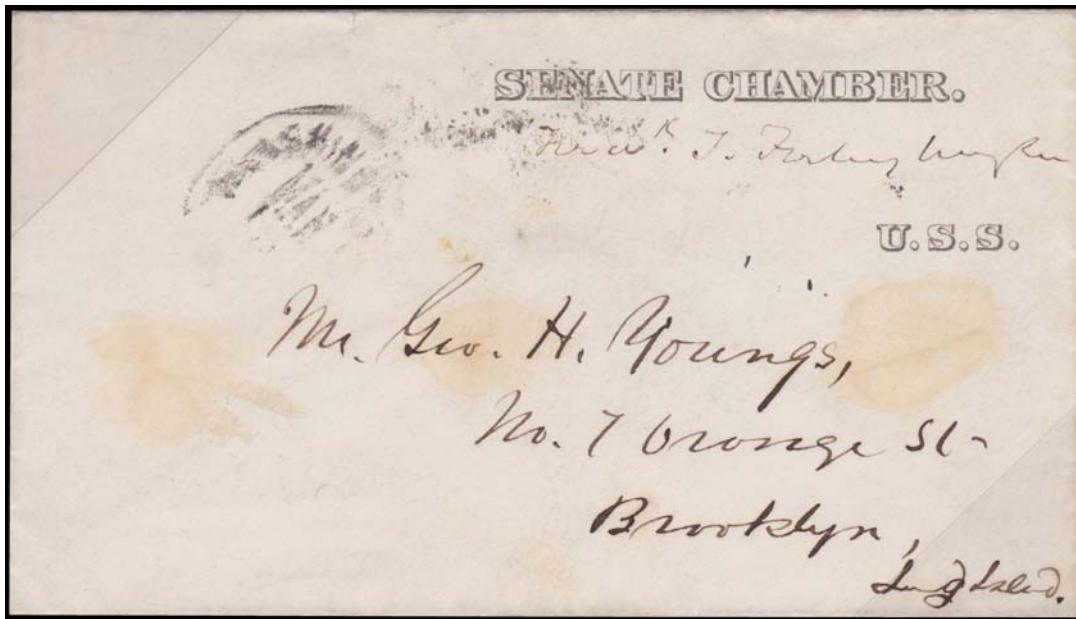 SENATE CHAMBER.
Fredk. T. Frelinghuysen
U.S.S.
WASHIN
MAY
Mr. Geo. H. Youngs,
No. 7 Orange St-
Brooklyn,
Long Island.